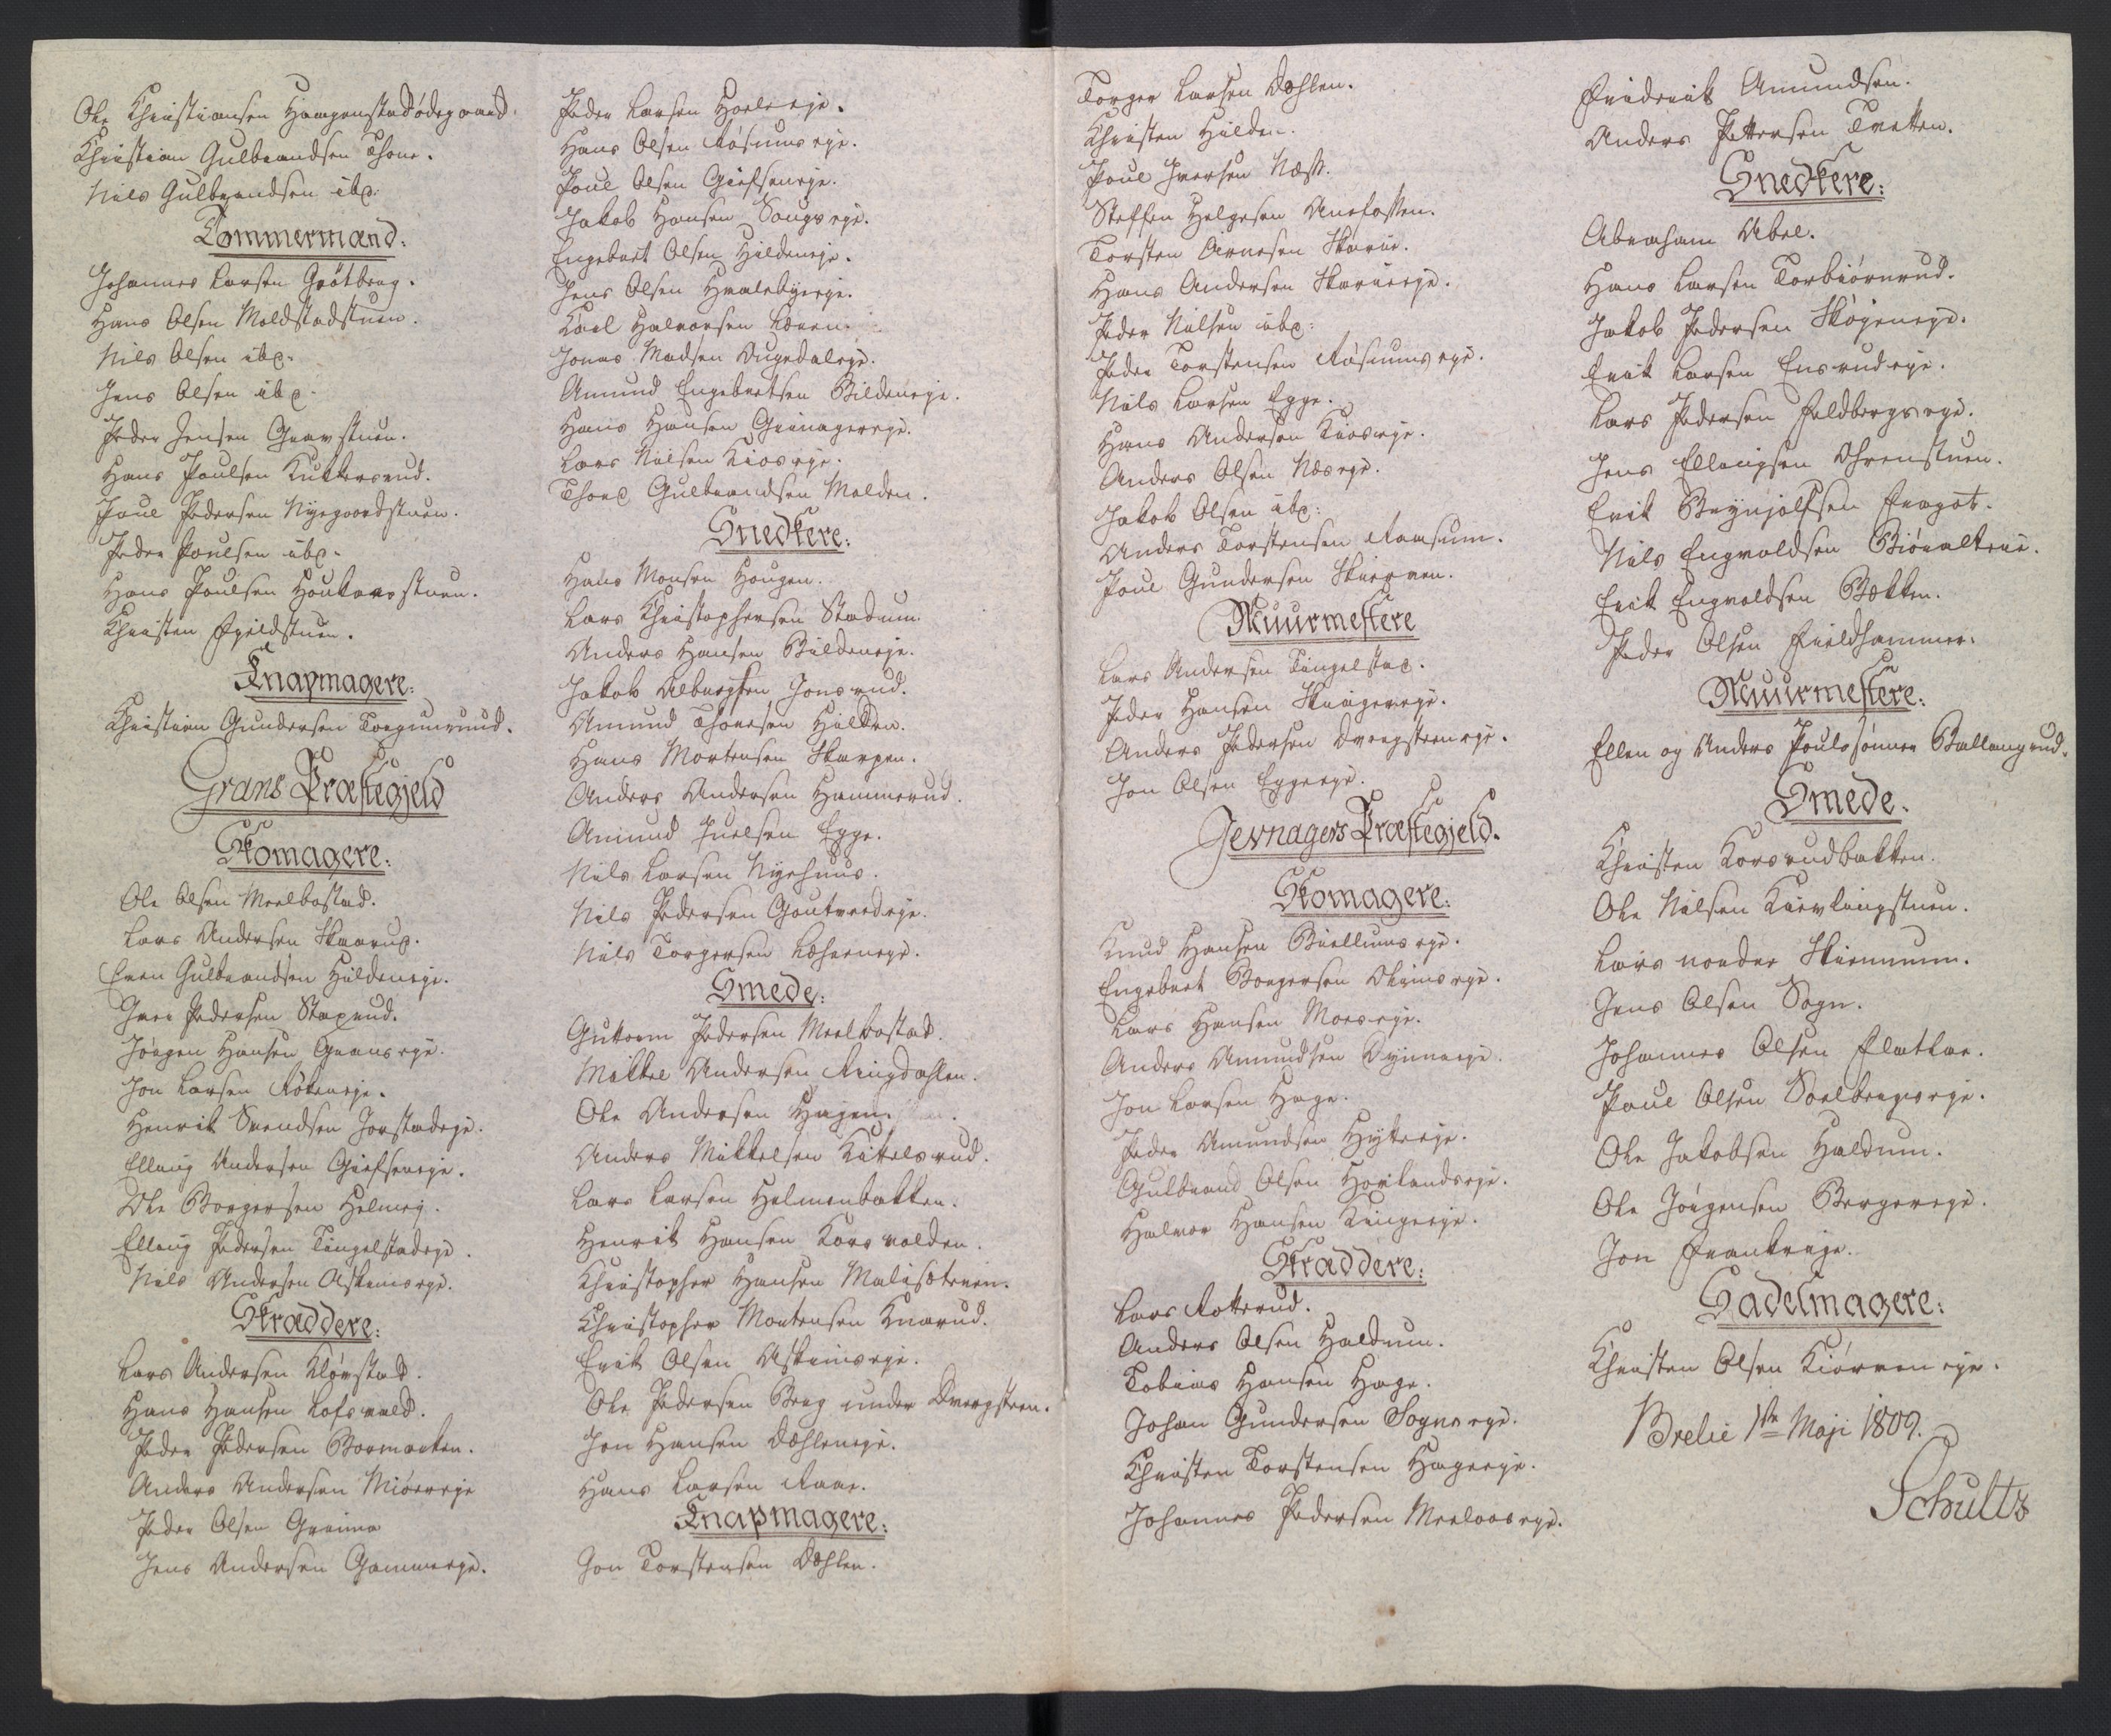 Ole Christiansen Haagenstadødegaard.
Christian Gulbrandsen Thone.
Nils Gulbrandsen ibd:
Tømmermænd:
Johannes Larsen Grøtberg.
Hans Olsen Moldstadstuen.
Nils Olsen ibd.
Jens Olsen ibd.
Peder Jensen Gravstuen.
Hans Poulsen Kuttersrud.
Poul Pedersen Nyegaardstuen.
Peder Poulsen ibd.
Hans Poulsen Houkaasstuen.
Christen Egildstuen.
Knapmagere:
Christian Gundersen Torgunrud.
Grans Præstegjeld
Skomagere:
Ole Olsen Meelbostad.
Lars Andersen Skaarud.
Even Gulbrandsen Hildeneje.
Iver Pedersen Staxrud.
Jørgen Hansen Granseje.
Jon Larsen Røkeneje.
Henrik Svendsen Jorstadeje.
Elling Andersen Giefseneje.
Ole Borgersen Helmeij.
Elling Pedersen Tingelstadeje.
Nils Andersen Askimseje.
Skræddere:
Lars Andersen Kløvstad.
Hans Hansen Lofsvald.
Peder Pedersen Bormarken.
Anders Andersen Miøreeje
Peder Olsen Grinna
Jens Andersen Gammeeje.
Peder Larsen Hoeleeje.
Hans Olsen Røsumseje.
Poul Olsen Giefseneje.
Jakob Hansen Sougseje.
Engebret Olsen Hildeneje.
Jens Olsen Hvalebyeeje.
Karl Halvorsen Leeren.
Jonas Madsen Dugedaleje.
Amund Engebretsen Bildeneje.
Hans Hansen Grinagereje.
Lars Nilsen Kioseje.
Thord Gulbrandsen Molden.
Snedkere:
Hans Monsen Hougen.
Lars Christophersen Stadum
Anders Hansen Bildeneje.
Jakob Albregtsen Jonsrud.
Amund Thoresen Hilden.
Hans Mortensen Skarpen.
Anders Andersen Hammerud.
Amund Juelsen Egge.
Nils Larsen Nyehuus.
Nils Pedersen Goutvedeje.
Nils Torgersen Løhreneje.
Smede:
Guttorm Pedersen Meelbostad.
Mikkel Andersen Ringdahlen.
Ole Andersen Hagen.
Anders Mikkelsen Kittelsrud.
Lars Larsen Helmenbakken.
Henrik Hansen Korsvolden.
Christopher Hansen Malisøteien.
Christopher Mortensen Knarud.
Erik Olsen Askimseje.
Ole Pedersen Berg under Dvergsteen.
Jon Hansen Dæhleneje.
Hans Larsen Raae.
Knapmagere:
Jon Torstensen Dæhlen.
Torger Larsen Dæhlen.
Christen Hilden.
Poul Iversen Næss.
Steffen Helgesen Anefossen.
Torsten Arnesen Skarie.
Hans Andersen Skarieeje.
Peder Nilsen ibd:
Peder Torstensen Røsumseje.
Nils Larsen Egge.
Hans Andersen Kioseje.
Anders Olsen Næseje.
Jakob Olsen ibd:
Anders Torstensen Raasum.
Poul Gundersen Skierven.
Muurmestere
Lars Andersen Tingelstad.
Peder Hansen Skiageneje.
Anders Pedersen Dvergsteeneje.
Jon Olsen Eggeeje.
Jevnagers Præstegjeld.
Skomagere:
Knud Hansen Biellumseje.
Engebret Borgersen Olrimseje.
Lars Hansen Moeseje.
Anders Amundsen Dynneeje.
Jon Larsen Hage.
Peder Amundsen Hytteeje.
Gulbrand Olsen Hovlandseje.
Halvor Hansen Kingeeje.
Skræddere:
Lars Rotterud.
Anders Olsen Haldum.
Tobias Hansen Hage.
Johan Gundersen Sognseje.
Christen Torstensen Hageeje.
Johannes Pedersen Meelaaseje.
Friderik Amundsen.
Anders Pettersen Tvetten.
Snedkere:
Abraham Abel.
Hans Larsen Torbiørnrud.
Jakob Pedersen Skøyeneje.
Erik Larsen Ensrudeje.
Lars Pedersen Feldbergseje.
Jens Ellingsen Ohrenstuen.
Erik Brynjolfsen Fragot.
Nils Engvoldsen Biøraltrie.
Erik Engvoldsen Bækken.
Peder Olsen Fieldhammer.
Muurmestere:
Ellen og Anders Poulssønner Ballangrud.
Smede.
Christen Korsrudbakken.
Ole Nilsen Kievlingstuen.
Lars nordre Skiennum.
Jens Olsen Sogn.
Johannes Olsen Flatlae.
Poul Olsen Soelbergseje.
Ole Jakobsen Haldum.
Ole Jørgensen Bergereje.
Jon Frankrige.
Sadelmagere:
Christen Olsen Kiørveneje.
Brelie 1ste Maji 1809.
Schultz